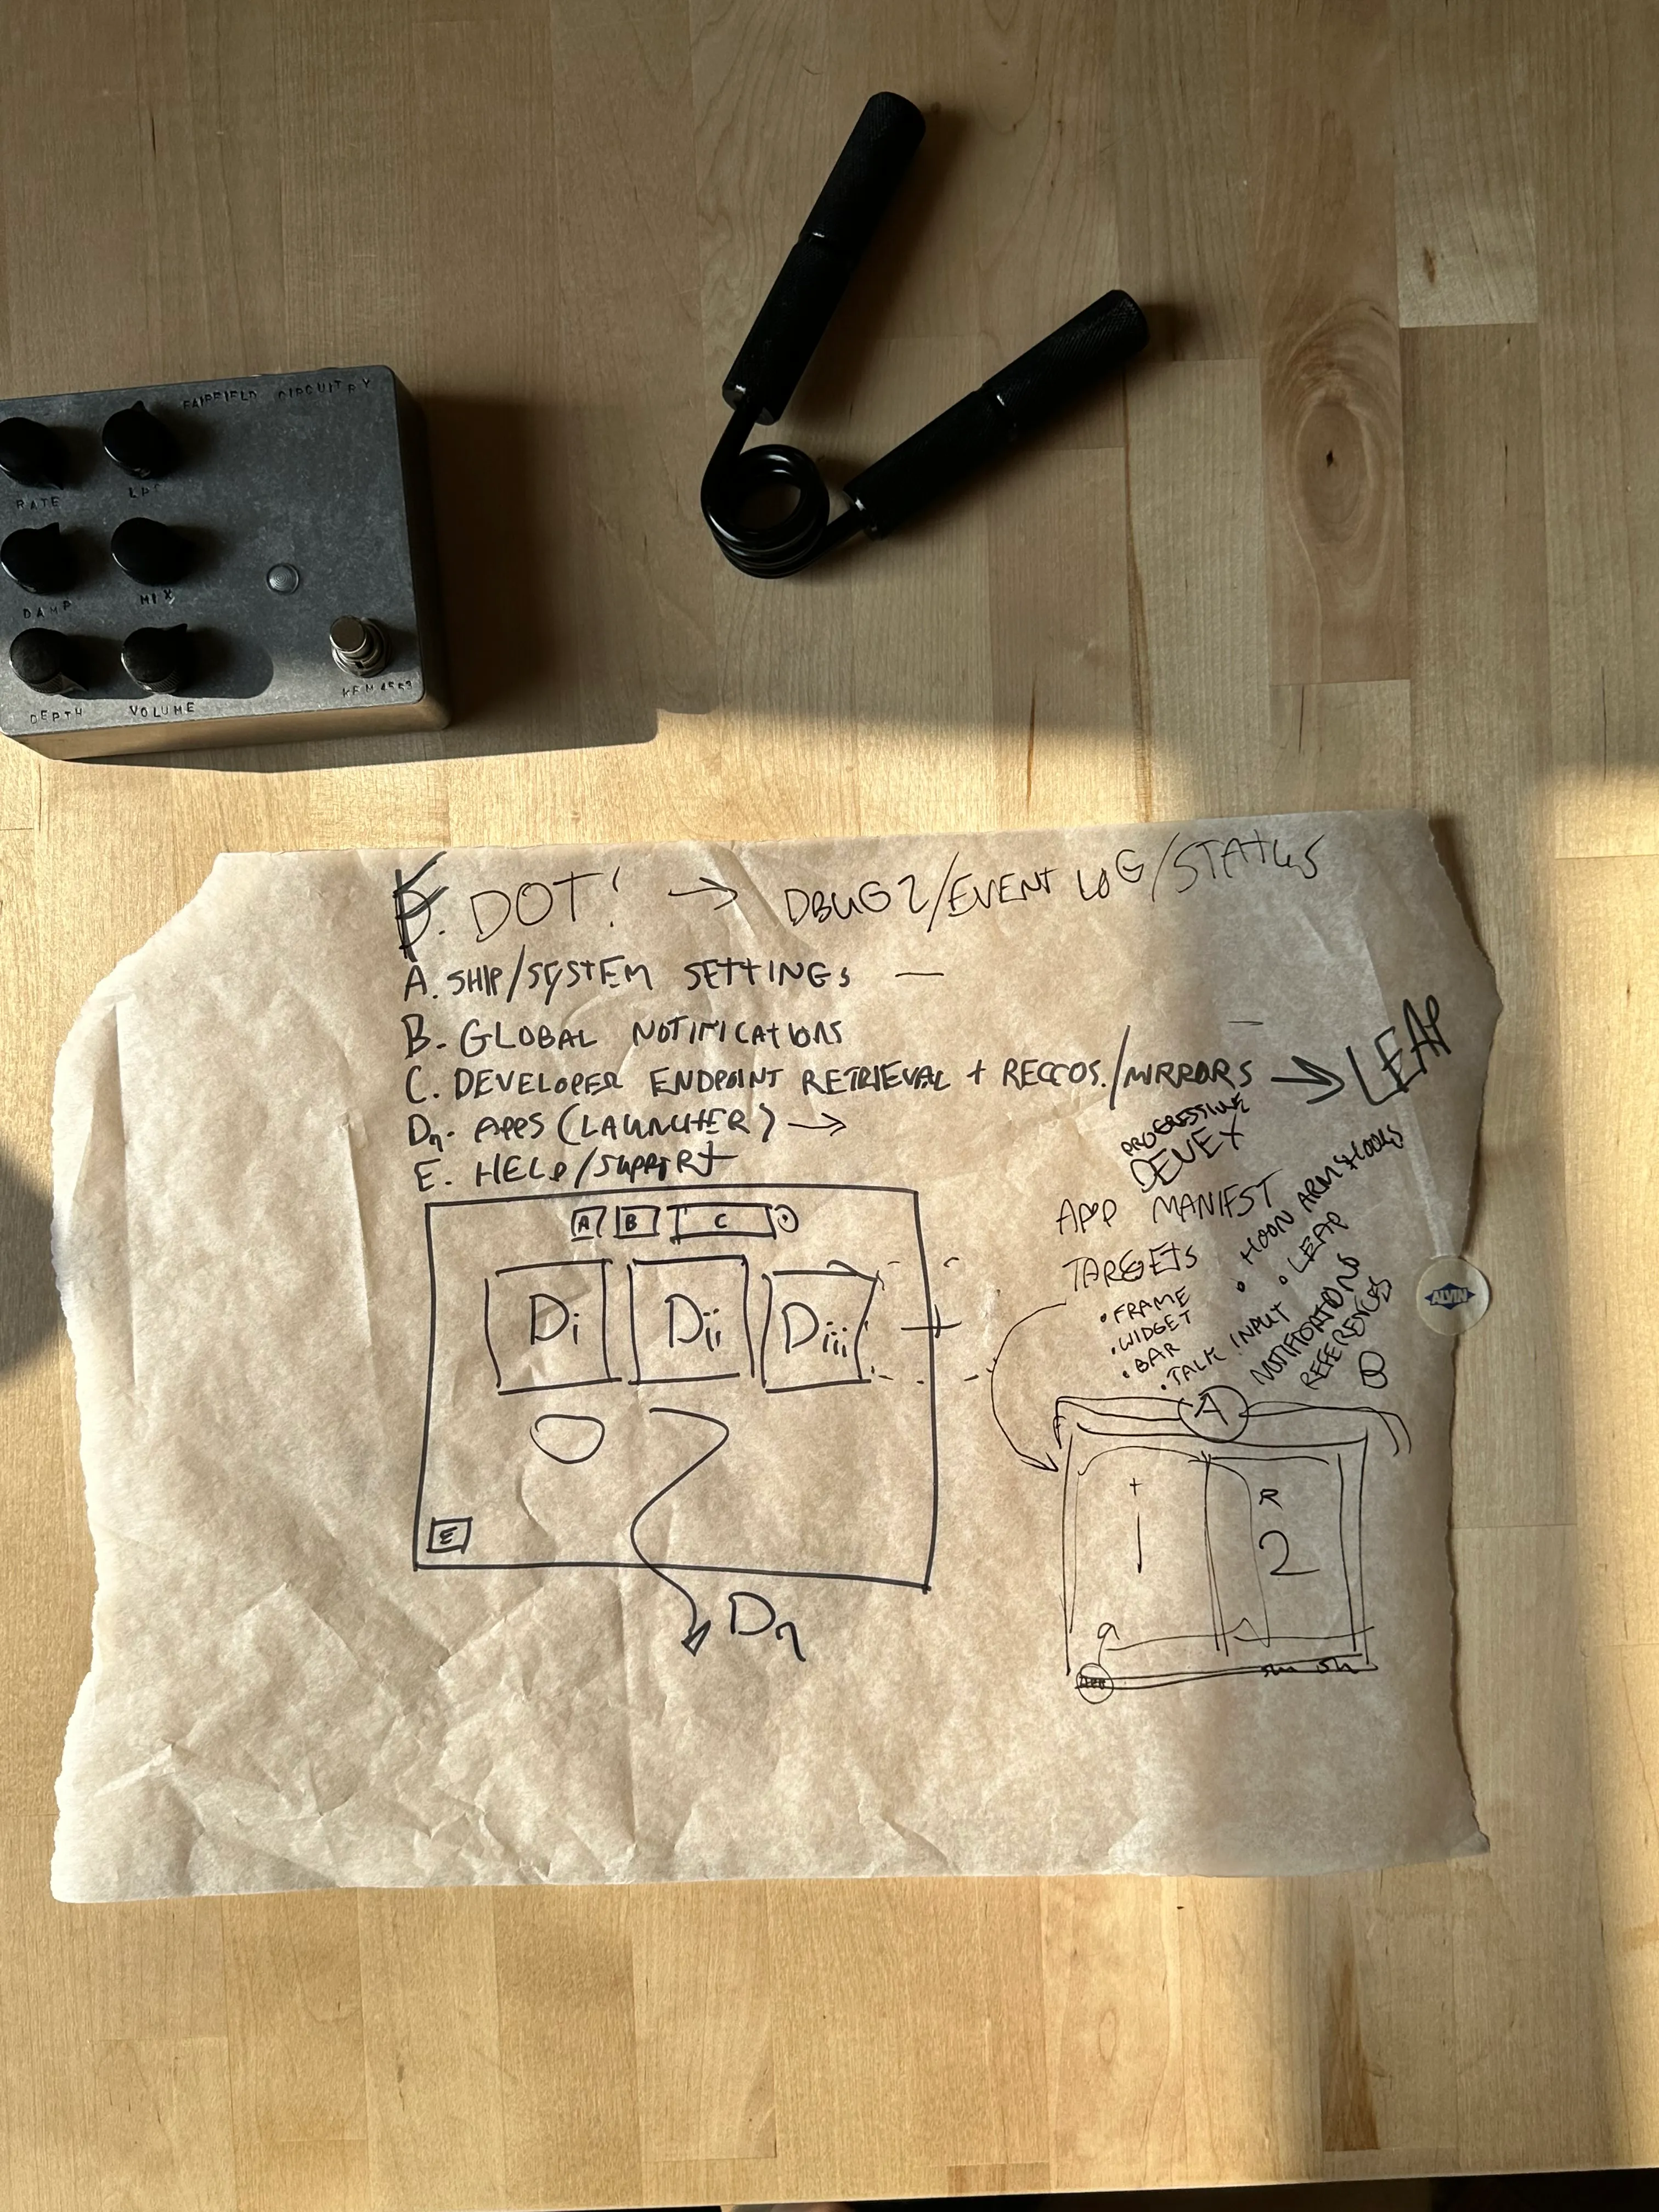 FAIRFIELD CIRCUITRY
RATE LPF
DAMP MIX
DEPTH VOLUME
F. DOT! → DBUG 2/EVENT LOG/STATUS
A. SHIP/SYSTEM SETTINGS —
B. GLOBAL NOTIFICATIONS
C. DEVELOPER ENDPOINT RETRIEVAL + RECCOS./MIRRORS → LEAP
Dn. APPS (LAUNCHER) →
E. HELP/SUPPORT
A B C
Di Dii Diii
E
Dn
PROGRESSIVE
DEVEX
APP MANIFEST
TARGETS
• FRAME
• WIDGET
• BAR
• TALK INPUT
• HOON ARMS HOOKS
• LEAP
NOTIFICATIONS
REFERENCES
A
1
R
2
ALVIN